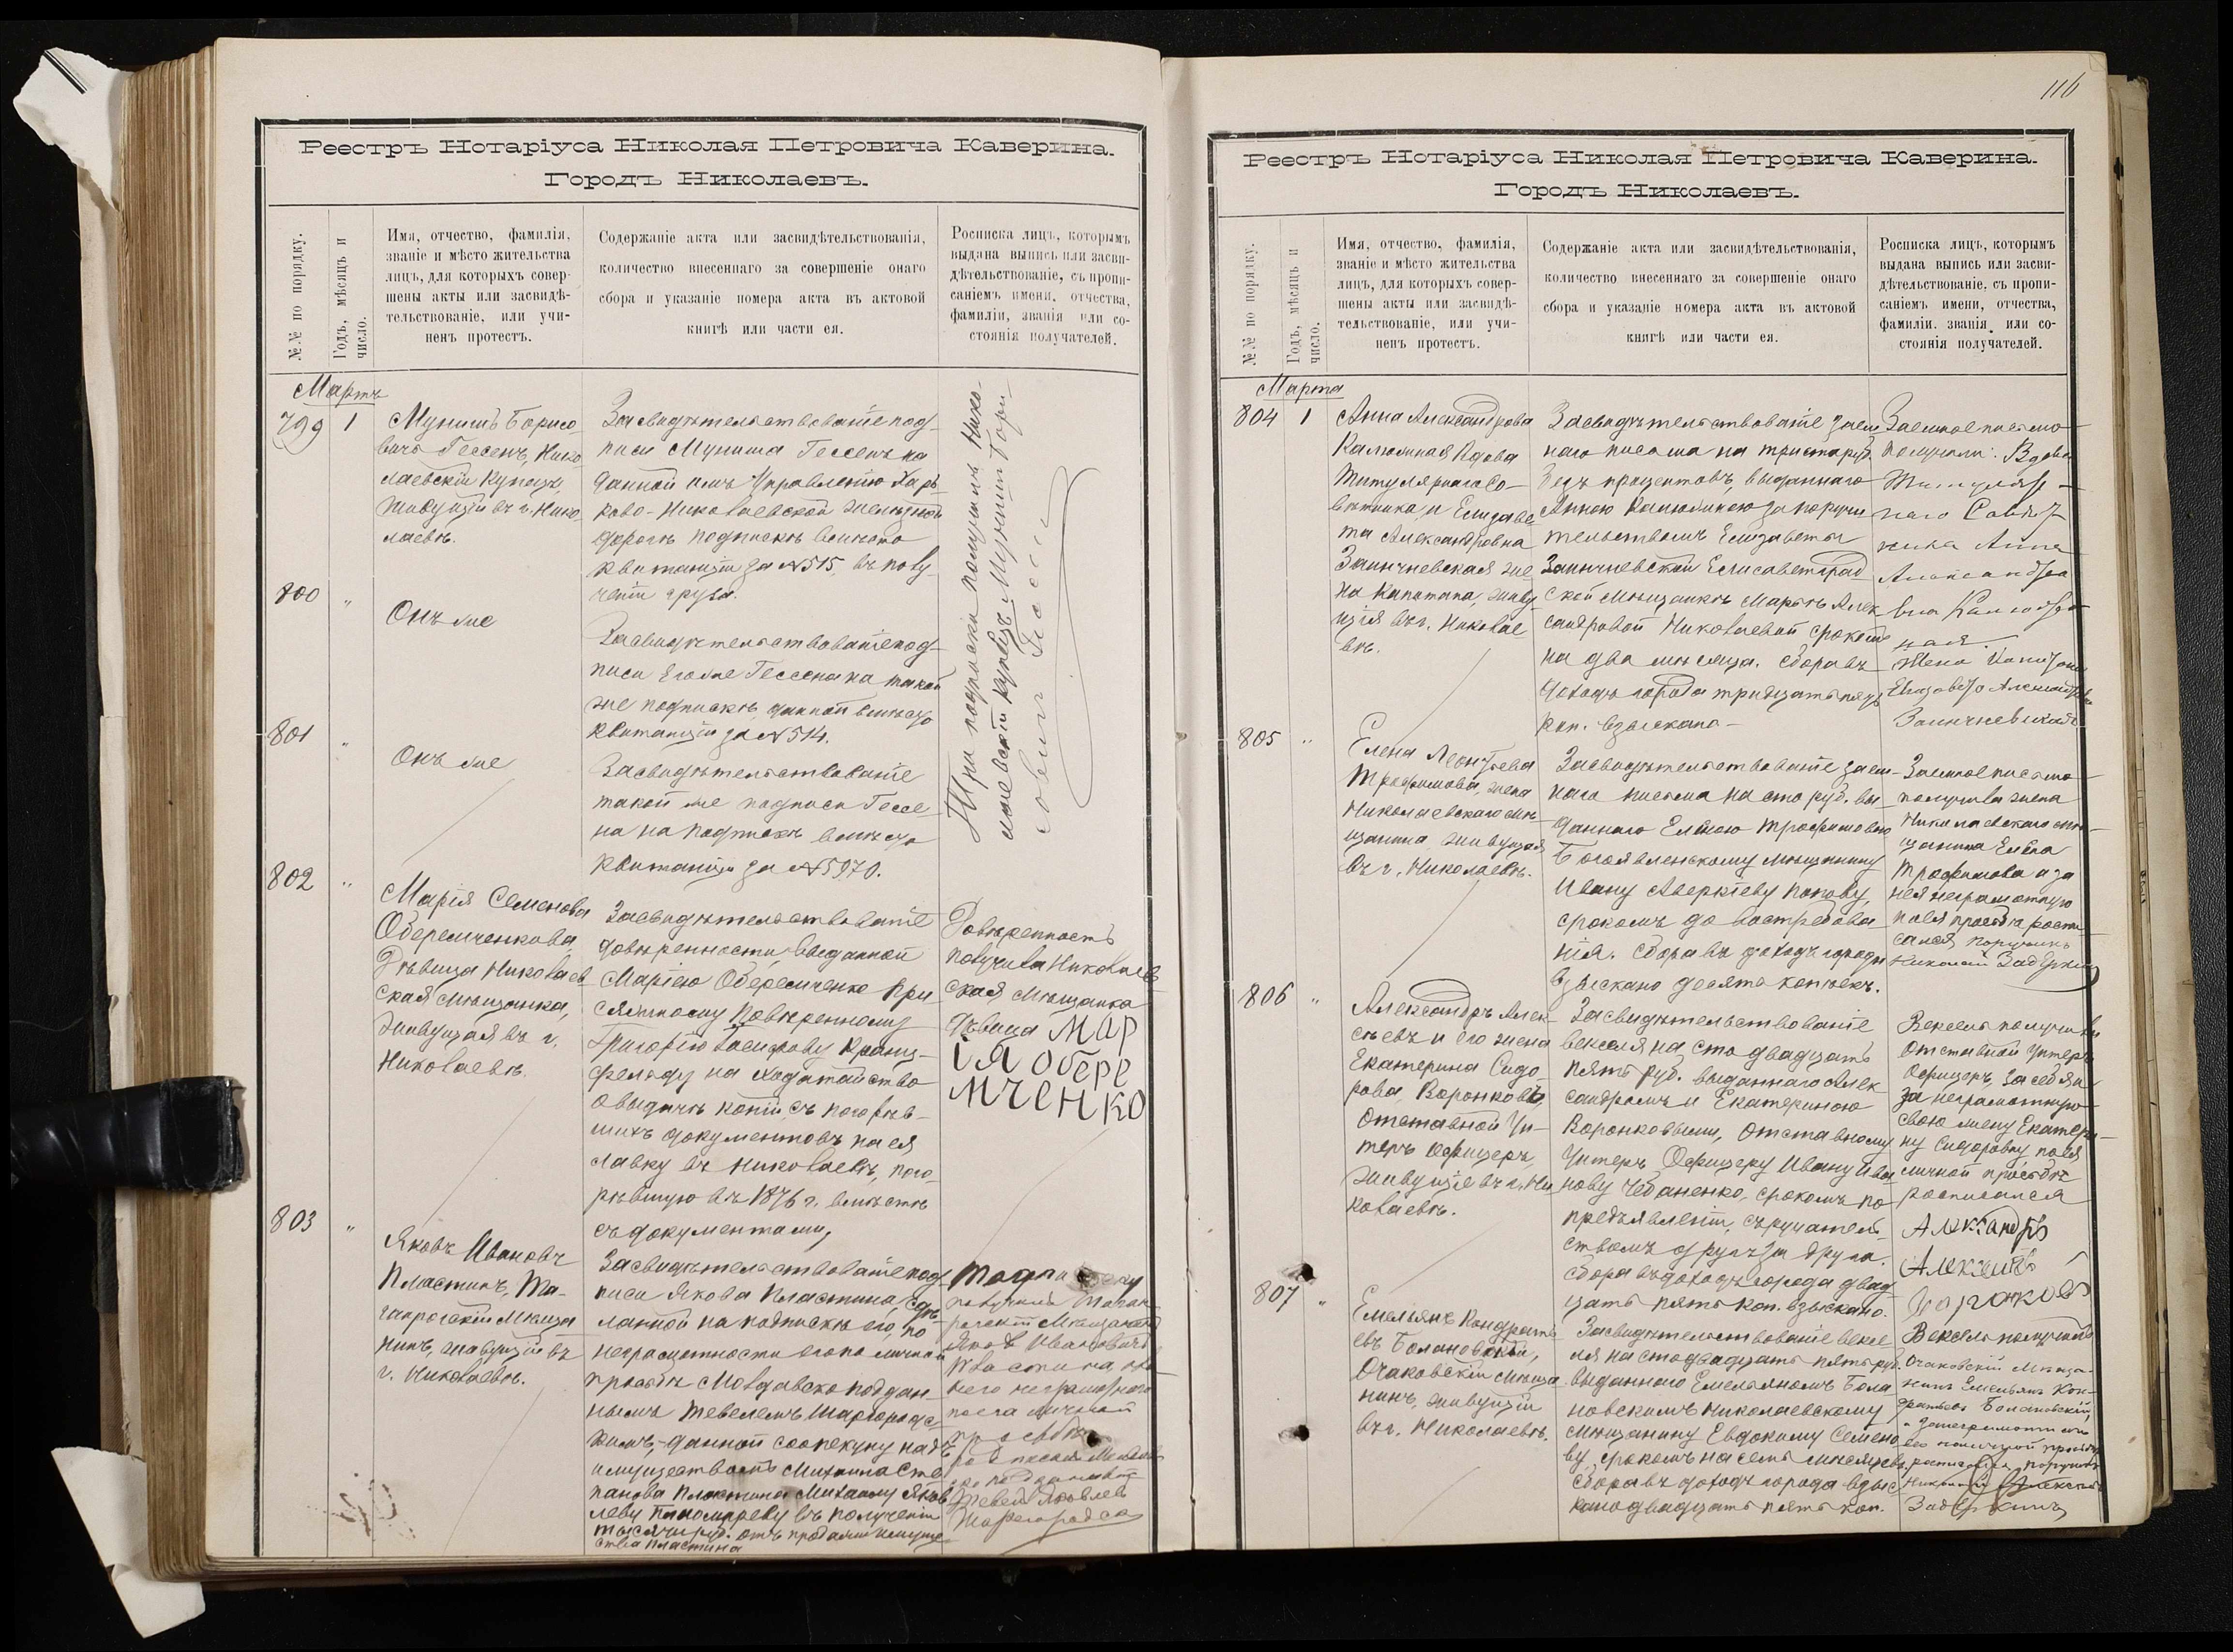 Реестръ Нотаріуса Николая Петровича Каверина.
Городъ Николаевъ.
№№ по порядку.
Годъ, мѣсяцъ и
число.
Имя, отчество, фамилія,
званіе и мѣсто жительства
лицъ, для которыхъ совер-
шены акты или засвидѣ-
тельствованіе, или учи-
ненъ протестъ.
Содержаніе акта или засвидѣтельствованія,
количество внесеннаго за совершеніе онаго
сбора и указаніе номера акта въ актовой
книгѣ или части ея.
Росписка лицъ, которымъ
выдана выпись или засви-
дѣтельствованіе, съ пропи-
саніемъ имени, отчества,
фамиліи, званія или со-
стоянія получателей.
Мартъ
799 1
Мунишъ Борисо-
вичъ Гессенъ, Нико
лаевскій Купецъ,
живущій въ г. Нико
лаевѣ.
Засвидѣтельствованіе под-
писи Муниша Гессенъ на
данной имъ Управленію Харь-
ково-Николаевской желѣзной
дороги подпискѣ вмѣсто
квитанціи за №515, въ полу-
ченіи груза.
Три подписки получилъ Нико-
лаевскій купецъ Мунишъ Бори-
совичъ Гессенъ
800 "
Онъ же
Засвидѣтельствованіе под-
писи Его же Гессена на такой
же подпискѣ, данной вмѣсто
квитанціи за №514.
801 "
Онъ же
Засвидѣтельствованіе
такой же подписи Гессе
на на подпискѣ вмѣсто
квитанціи за №5970.
802 "
Марія Семенова
Оберемченкова,
Дѣвица Николаев
ская мѣщанка,
живущая въ г.
Николаевѣ.
Засвидѣтельствованіе
довѣренности, выданной
Маріею Оберемченко при
сяжному повѣренному
Григорію Іосифову Кранц-
фельду на ходатайство
о выдачѣ копій съ погорѣв-
шихъ документовъ на ея
лавку въ Николаевѣ, пого
рѣвшую въ 1876 г. вмѣстѣ
съ документами,
Довѣренность
получила Николаев
ская мѣщанка
дѣвица Мар
ія Обере
мченко
803 "
Яковъ Ивановъ
Пластинъ, Та-
ганрогскій мѣща
нинъ, живущій въ
г. Николаевѣ.
Засвидѣтельствованіе под
писи Якова Пластина, сдѣ-
ланной на подпискѣ его, по
неграмотности его по личной
просьбѣ Молдавско подан-
нымъ Тевелемъ Шаргородс
кимъ,-данной соопекуну надъ
имуществомъ Михаила Сте
панова Пластина, Михаилу Яков
леву Пономареву въ полученіи
тысячи руб. отъ продажи имуще
ства Пластина
получилъ Таган
рогскій Мѣщанинъ
Яковъ Ивановичъ
Пластинъ
него неграмотнаго
по его личной
просьбѣ
Тевель Яковлев
Шаргородск
116
Реестръ Нотаріуса Николая Петровича Каверина.
Городъ Николаевъ.
№№ по порядку.
Годъ, мѣсяцъ и
число.
Имя, отчество, фамилія,
званіе и мѣсто жительства
лицъ, для которыхъ совер-
шены акты или засвидѣ-
тельствованіе, или учи-
ненъ протестъ.
Содержаніе акта или засвидѣтельствованія,
количество внесеннаго за совершеніе онаго
сбора и указаніе номера акта въ актовой
книгѣ или части ея.
Росписка лицъ, которымъ
выдана выпись или засви-
дѣтельствованіе, съ пропи-
саніемъ имени, отчества,
фамиліи, званія или со-
стоянія получателей.
Марта
804 1
Анна Александрова
Калюжная Вдова
Титулярнаго Со-
вѣтника, и Елизаве
та Александровна
Заинчневская же
на Капитана, живу
щія въ г. Николае
вѣ.
Засвидѣтельствованіе заем
наго письма на триста руб.
безъ процентовъ, выданнаго
Анною Калюжною за поручи
тельствомъ Елизаветы
Заинчневской Елисаветград
ской мѣщанкѣ Марѣѣ Алек
сандровой Николаевой срокомъ
на два мѣсяца. Сбора въ
доходъ города тридцать пять
коп. взыскано -
Заемное письмо
получили: Вдова
Титуляр-
наго Совѣт
ника Анна
Александро
вна Калюж
ная.
Жена Капитана
Елизавета Александровна
Заинчневская
805 "
Елена Леонтьева
Трофимова, жена
Николаевскаго мѣ-
щанина, живущая
въ г. Николаевѣ.
Засвидѣтельствованіе заем-
наго письма на сто руб. вы
даннаго Еленою Трофимовою
Богоявленскому мѣщанину
Ивану Аверкіеву Попову,
срокомъ до востребова
нія. Сбора въ доходъ города
взыскано десять копѣекъ.
Заемное письмо
получила жена
Николаевскаго мѣ-
щанина Елена
Трофимова а за
нея неграмотную
по ея просьбѣ роспи
сался поручикъ
Николай Задеркинъ
806 "
Александръ Алек-
сѣевъ и его жена
Екатерина Сидо
рова, Воронковы,
Отставной Ун-
теръ Офицеръ,
живущіе въ г. Ни
колаевѣ.
Засвидѣтельствованіе
векселя на сто двадцать
пять руб. выданнаго Алек
сандромъ и Екатериною
Воронковыми, отставному
Унтеръ Офицеру Ивану Ива
нову Чебаненко, срокомъ по
предъявленіи, съ ручатель
ствомъ другъ за друга.
Сбора въ доходъ города двад
цать пять коп. взыскано.
Вексель получилъ
Отставной Унтеръ
Офицеръ, за себя и
за неграмотную
свою жену Екатери-
ну Сидоровну по ея
личной просьбѣ
росписался
Александръ
Алексѣевъ
Воронковъ
807 "
Емельянъ Кондрать
евъ Болановскій,
Очаковскій мѣща
нинъ, живущій
въ г. Николаевѣ.
Засвидѣтельствованіе вексе
ля на сто двадцать пять руб.
выданнаго Емельяномъ Бола
новскимъ Николаевскому
мѣщанину Евдокиму Семено
ву, срокомъ на семь мѣсяцевъ.
Сбора въ доходъ города взыс
кано двадцать пять коп.
Вексель получилъ
Очаковскій Мѣща-
нинъ Емельянъ Кон-
дратьевъ Болановскій,
а за неграмотн
его личной просьбѣ
росписался поручикъ
Николай
Задеркинъ